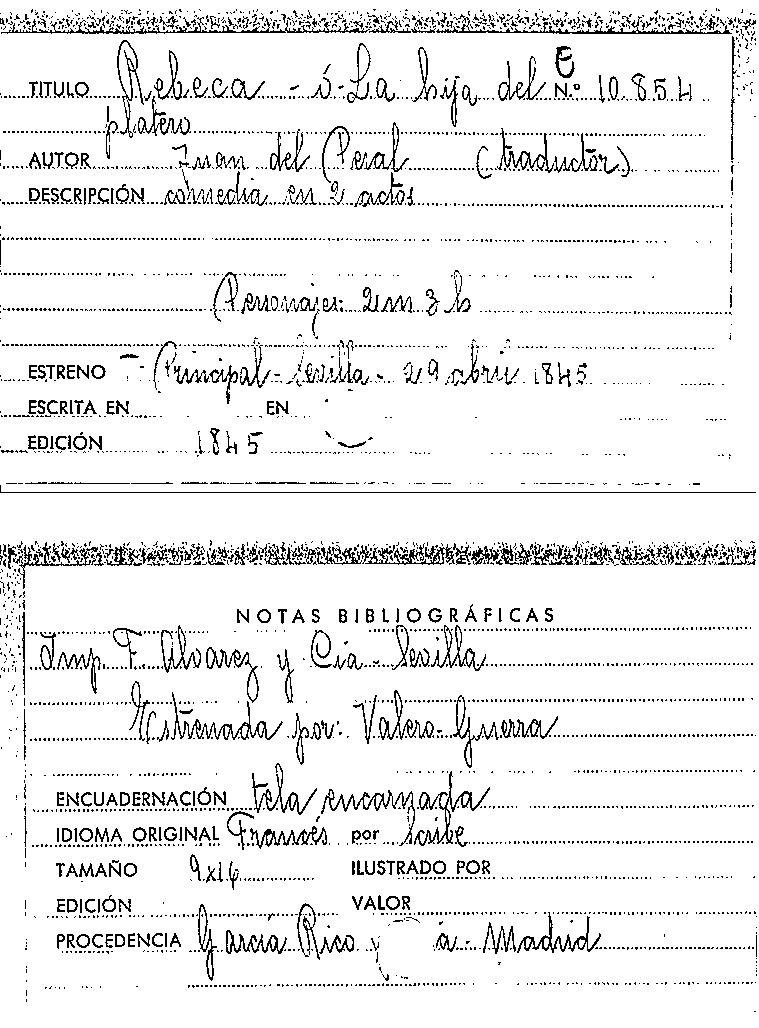 TITULO Rebeca - ó - La hija del E N.º 10.854
platero
AUTOR Juan del Peral (traductor)
DESCRIPCIÓN comedia en 2 actos
Personajes: 2 m 3 h
ESTRENO - Principal - Sevilla - 29 abril 1845
ESCRITA EN EN
EDICIÓN 1845
NOTAS BIBLIOGRÁFICAS
Imp. F. Alvarez y Cia - Sevilla
Estrenada por: Valero - Guerra
ENCUADERNACIÓN tela encarnada
IDIOMA ORIGINAL Francés por Scribe
TAMAÑO 9x16 ILUSTRADO POR
EDICIÓN VALOR
PROCEDENCIA García Rico y a - Madrid